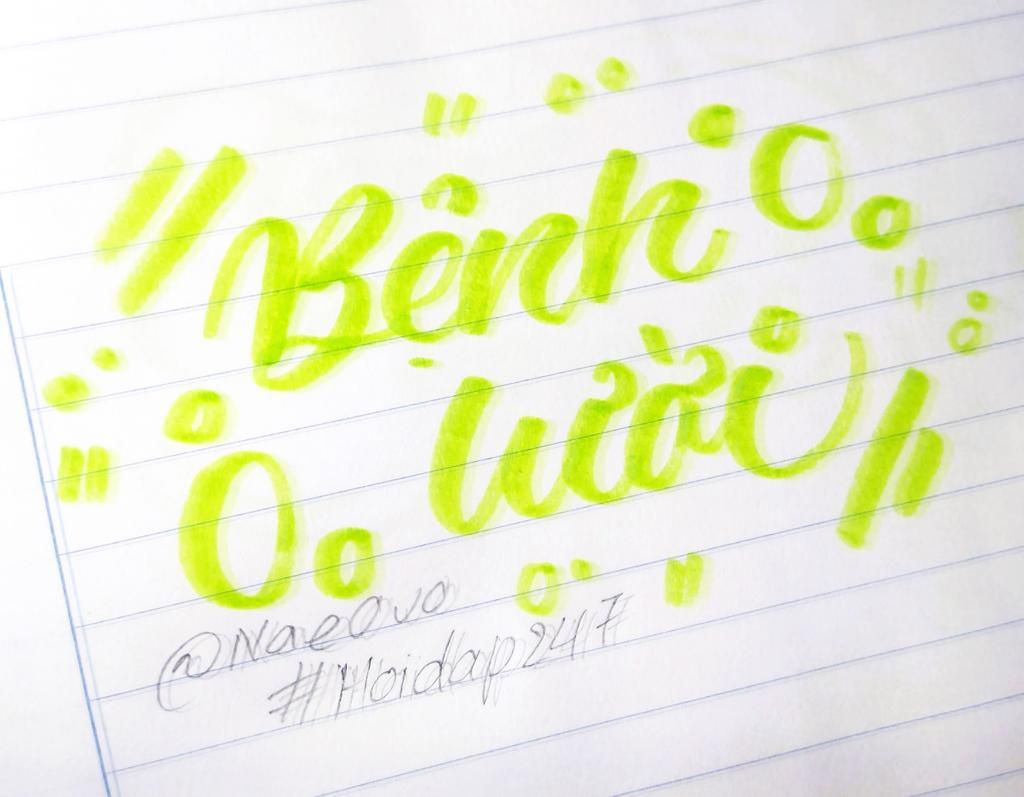 Bệnh
lười
@NaeOvo
#Hoidap247